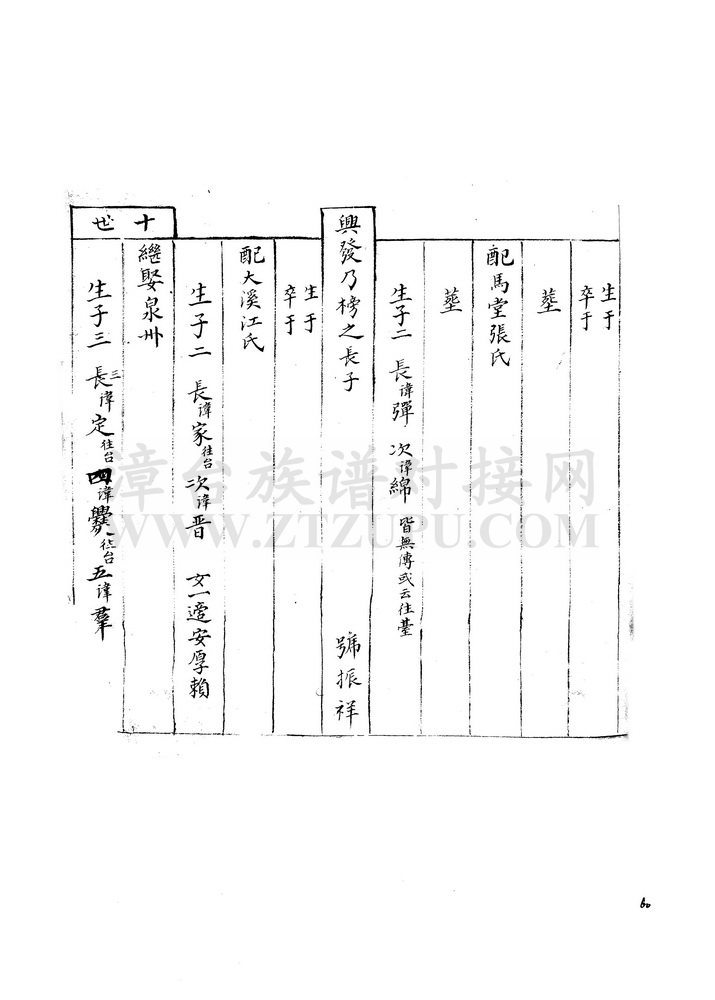 生于
卒于
墓
配馬堂張氏
墓
生子二 長諱彈 次諱綿 皆無傳或云往臺
興發乃榜之長子 號振祥
生于
卒于
配大溪江氏
生子二 長諱家往台 次諱晋 女一適安厚賴
十世
繼娶泉州
生子三 長三諱定往台 四諱 往台 五諱羣
漳台族谱对接网
WWW.ZTZUPU.COM
60